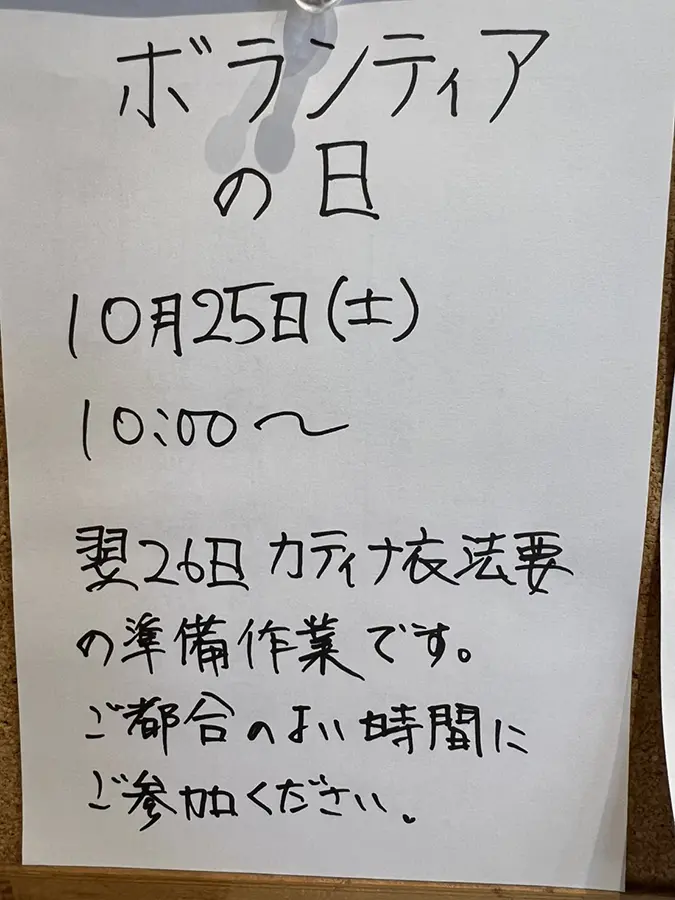 ボランティア
の日
10月25日(土)
10:00〜
翌26日カティナ衣法要
の準備作業です。
ご都合のよい時間に
ご参加ください。